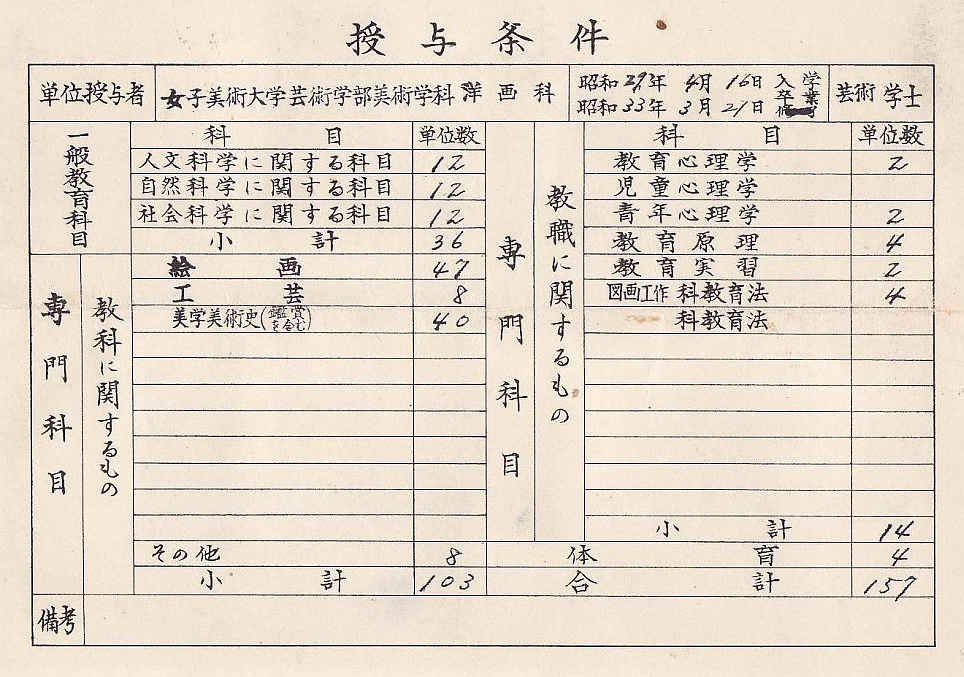 授与条件
単位授与者 女子美術大学芸術学部美術学科 洋画科 昭和29年 4月 16日 入学 芸術 学士
昭和33年 3月 21日 卒業
一般教育科目
科目 単位数
人文科学に関する科目 12
自然科学に関する科目 12
社会科学に関する科目 12
小計 36
専門科目
教科に関するもの
絵画 47
工芸 8
美学美術史(鑑賞を含む) 40
その他 8
小計 103
専門科目
教職に関するもの
科目 単位数
教育心理学 2
児童心理学
青年心理学 2
教育原理 4
教育実習 2
図画工作 科教育法 4
科教育法
小計 14
体育 4
合計 157
備考